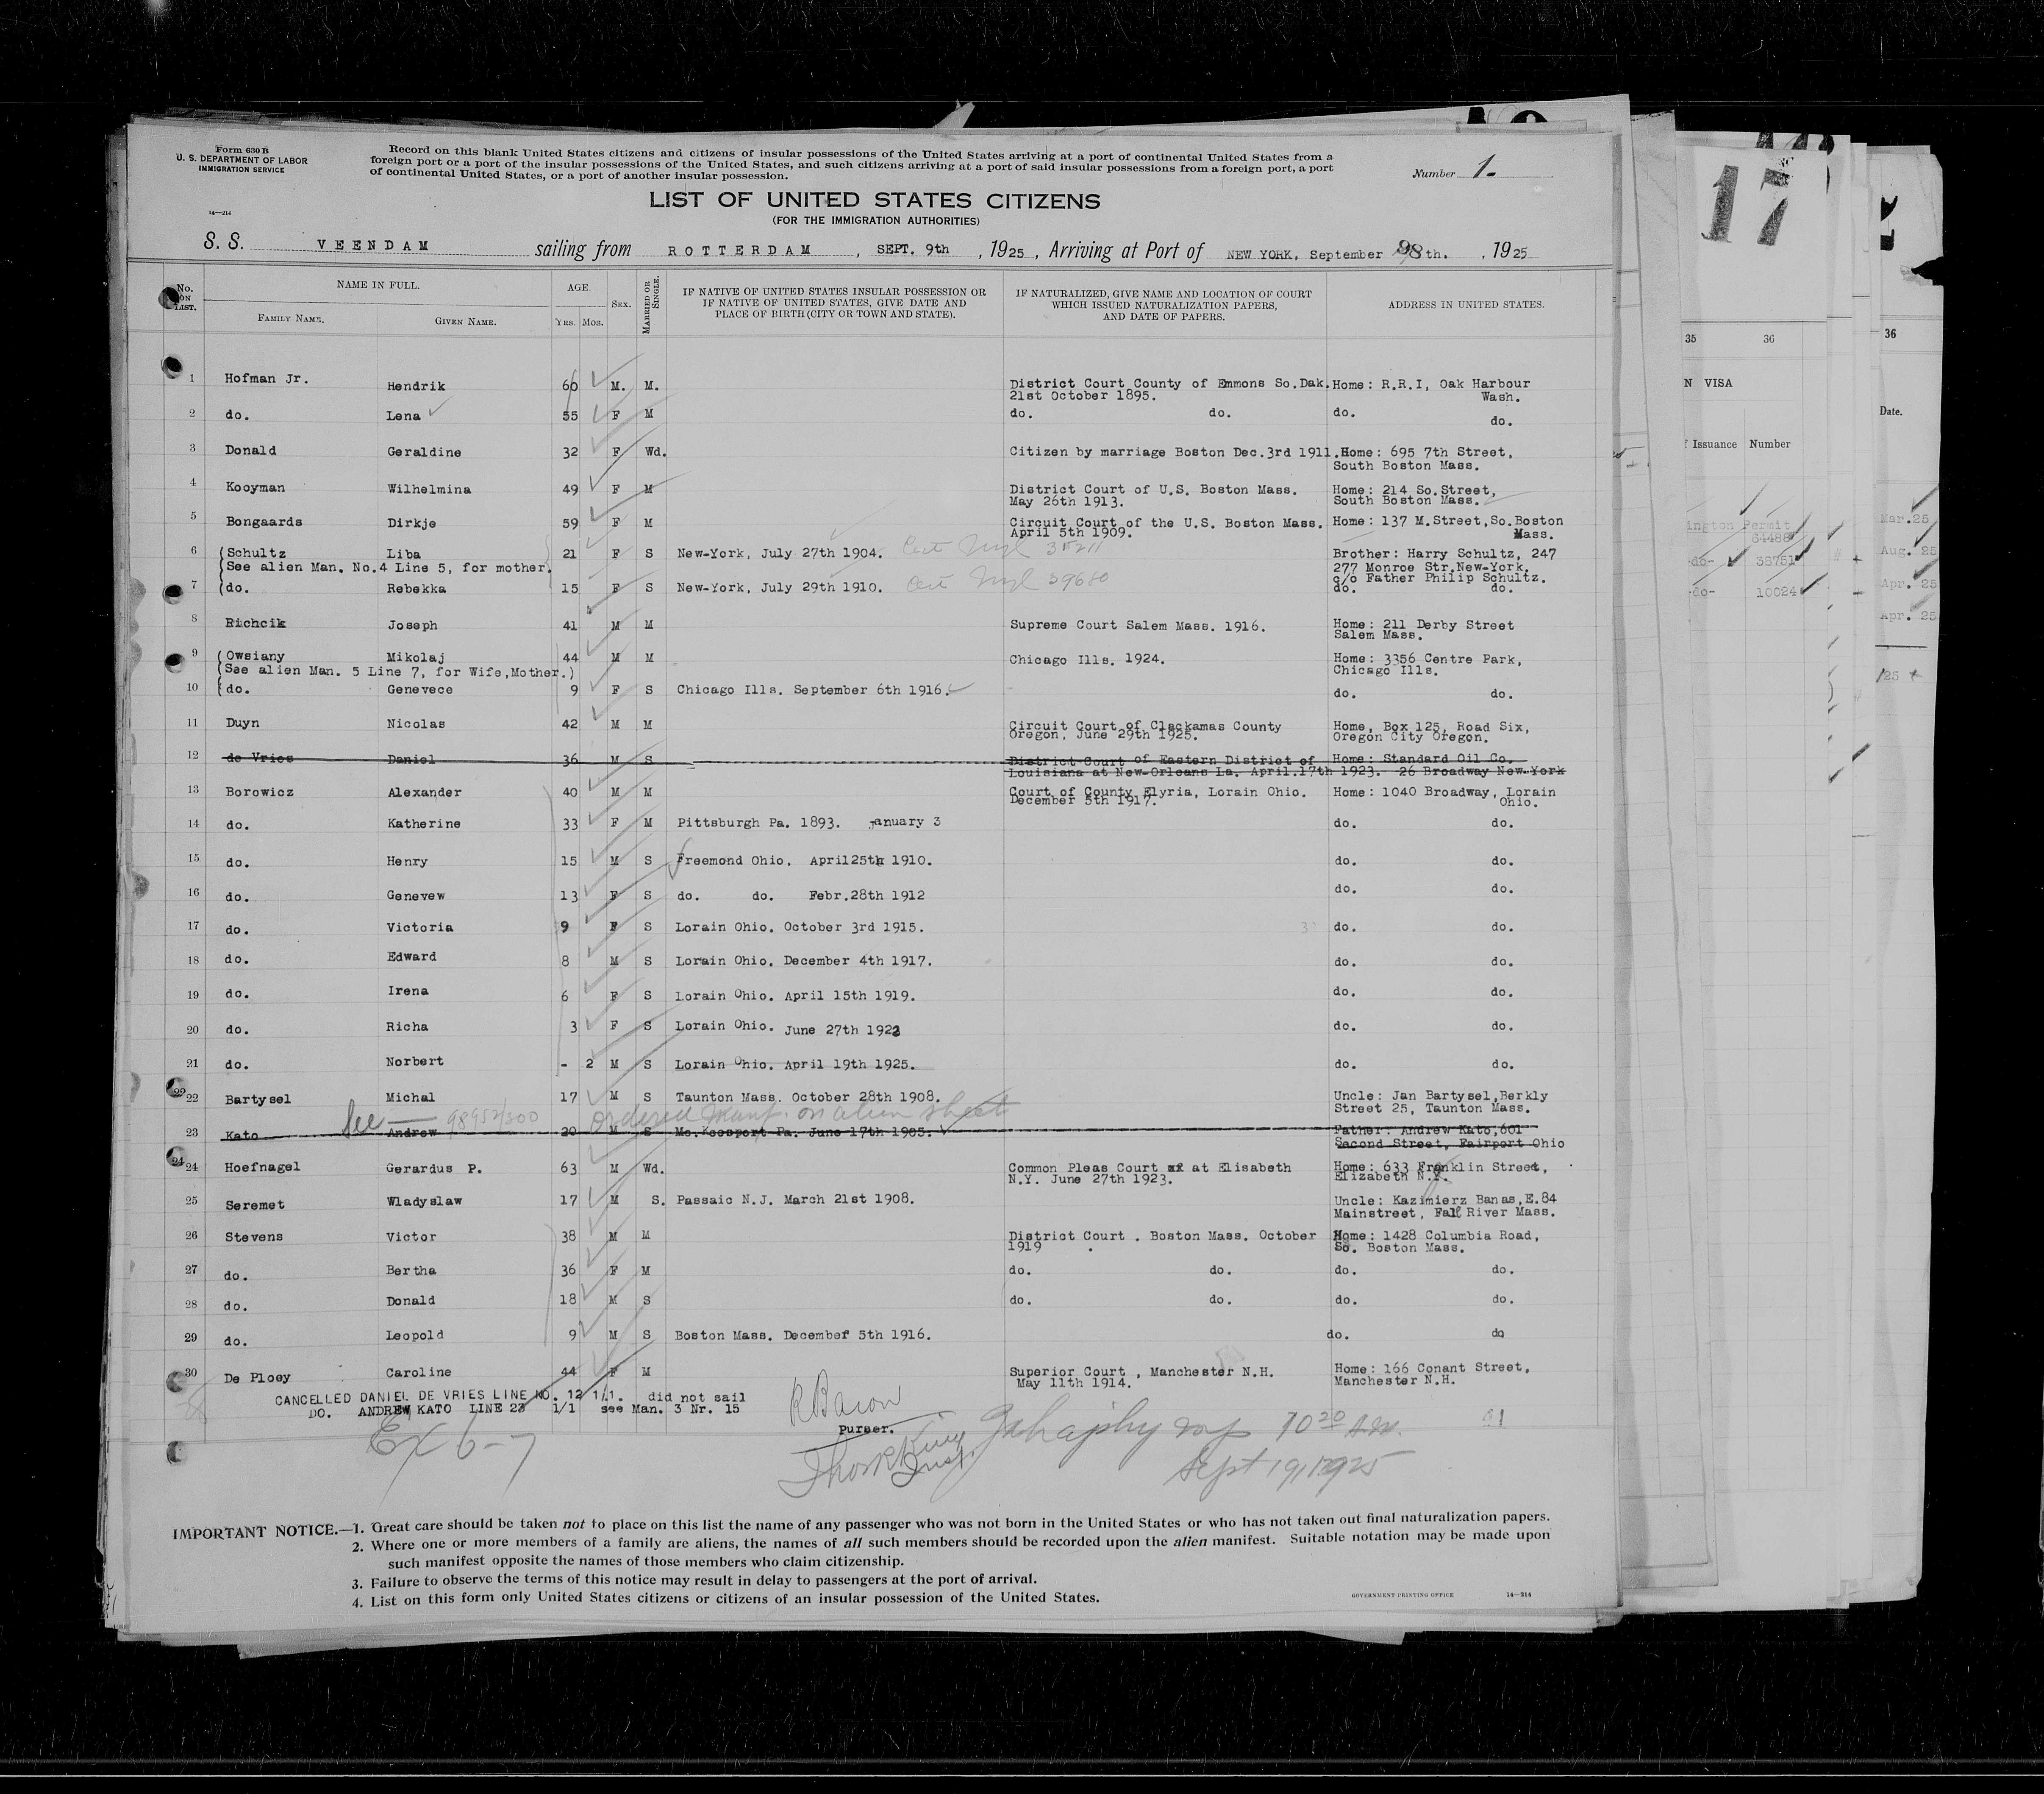 Form 630 B
U. S. DEPARTMENT OF LABOR
IMMIGRATION SERVICE
14—214
Record on this blank United States citizens and citizens of insular possessions of the United States arriving at a port of continental United States from a
foreign port or a port of the insular possessions of the United States, and such citizens arriving at a port of said insular possessions from a foreign port, a port
of continental United States, or a port of another insular possession.
Number 1.
LIST OF UNITED STATES CITIZENS
(FOR THE IMMIGRATION AUTHORITIES)
S. S. VEENDAM sailing from ROTTERDAM, SEPT. 9th, 1925, Arriving at Port of NEW YORK, September th., 1925
No. ON LIST. NAME IN FULL. AGE. SEX. MARRIED OR SINGLE. IF NATIVE OF UNITED STATES INSULAR POSSESSION OR IF NATIVE OF UNITED STATES, GIVE DATE AND PLACE OF BIRTH (CITY OR TOWN AND STATE). IF NATURALIZED, GIVE NAME AND LOCATION OF COURT WHICH ISSUED NATURALIZATION PAPERS, AND DATE OF PAPERS. ADDRESS IN UNITED STATES.
FAMILY NAME. GIVEN NAME. YRS. MOS.
1 Hofman Jr. Hendrik 60 M. M. District Court County of Emmons So.Dak. Home: R.R.I, Oak Harbour
21st October 1895. Wash.
2 do. Lena 55 F M do. do. do. do.
3 Donald Geraldine 32 F Wd. Citizen by marriage Boston Dec.3rd 1911. Home: 695 7th Street,
South Boston Mass.
4 Kooyman Wilhelmina 49 F M District Court of U.S. Boston Mass. Home: 214 So.Street,
May 26th 1913. South Boston Mass.
5 Bongaards Dirkje 59 F M Circuit Court of the U.S. Boston Mass. Home: 137 M.Street,So.Boston
April 5th 1909. Mass.
6 (Schultz Liba 21 F S New-York, July 27th 1904. Brother: Harry Schultz, 247
(See alien Man. No.4 Line 5, for mother. 277 Monroe Str.New-York.
c/o Father Philip Schultz.
7 (do. Rebekka 15 F S New-York, July 29th 1910. 39680 do. do.
8 Richcik Joseph 41 M M Supreme Court Salem Mass. 1916. Home: 211 Derby Street
Salem Mass.
9 (Owsiany Mikolaj 44 M M Chicago Ills. 1924. Home: 3356 Centre Park,
(See alien Man. 5 Line 7, for Wife,Mother.) Chicago Ills.
10 (do. Genevece 9 F S Chicago Ills. September 6th 1916. do. do.
11 Duyn Nicolas 42 M M Circuit Court of Clackamas County Home, Box 125, Road Six,
Oregon, June 29th 1925. Oregon City Oregon.
12 de Vries Daniel 36 M S District Court of Eastern District of Home: Standard Oil Co.
Louisiana at New-Orleans La. April.17th 1923. 26 Broadway New-York
13 Borowicz Alexander 40 M M Court of County Elyria, Lorain Ohio. Home: 1040 Broadway, Lorain
December 5th 1917. Ohio.
14 do. Katherine 33 F M Pittsburgh Pa. 1893. January 3 do. do.
15 do. Henry 15 M S Freemond Ohio, April25th 1910. do. do.
16 do. Genevew 13 F S do. do. Febr.28th 1912 do. do.
17 do. Victoria 9 F S Lorain Ohio. October 3rd 1915. do. do.
18 do. Edward 8 M S Lorain Ohio. December 4th 1917. do. do.
19 do. Irena 6 F S Lorain Ohio. April 15th 1919. do. do.
20 do. Richa 3 F S Lorain Ohio. June 27th 1922 do. do.
21 do. Norbert - 2 M S Lorain Ohio. April 19th 1925. do. do.
22 Bartysel Michal 17 M S Taunton Mass. October 28th 1908. Uncle: Jan Bartysel,Berkly
Street 25, Taunton Mass.
See — 98952/300 Ordered Manf. on alien sheet
23 Kato Andrew 20 M S Mc.Keesport Pa. June 17th 1905. Father: Andrew Kato,601
Second Street, Fairport Ohio
24 Hoefnagel Gerardus P. 63 M Wd. Common Pleas Court at Elisabeth Home: 633 Franklin Street,
N.Y. June 27th 1923. Elizabeth N.Y.
25 Seremet Wladyslaw 17 M S. Passaic N.J. March 21st 1908. Uncle: Kazimierz Banas,E.84
Mainstreet, Fall River Mass.
26 Stevens Victor 38 M M District Court . Boston Mass. October Home: 1428 Columbia Road,
1919 . So. Boston Mass.
27 do. Bertha 36 F M do. do. do. do.
28 do. Donald 18 M S do. do. do. do.
29 do. Leopold 9 M S Boston Mass. December 5th 1916. do. do
30 De Ploey Caroline 44 F M Superior Court , Manchester N.H. Home: 166 Conant Street,
May 11th 1914. Manchester N.H.
CANCELLED DANIEL DE VRIES LINE NO. 12 1/1. did not sail
DO. ANDREW KATO LINE 23 1/1 see Man. 3 Nr. 15
R Bacon
Purser.
Ex 6-7
10 20 A.M.
Sept 19, 1925
IMPORTANT NOTICE.—1. Great care should be taken not to place on this list the name of any passenger who was not born in the United States or who has not taken out final naturalization papers.
2. Where one or more members of a family are aliens, the names of all such members should be recorded upon the alien manifest. Suitable notation may be made upon
such manifest opposite the names of those members who claim citizenship.
3. Failure to observe the terms of this notice may result in delay to passengers at the port of arrival.
4. List on this form only United States citizens or citizens of an insular possession of the United States.
GOVERNMENT PRINTING OFFICE 14—214
17
35 36
N VISA
Issuance Number
ington Permit
64488
-do- 38751
-do- 10024
36
Date.
Mar.25
Aug. 25
Apr. 25
Apr. 25
/25